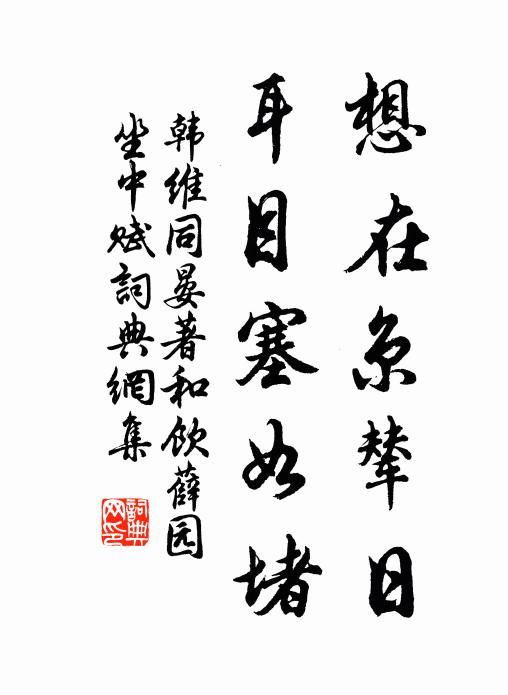 想在京輦日
耳目塞如堵
韩維同晏著和饮薛园
坐中赋詞典網集
詞典网印